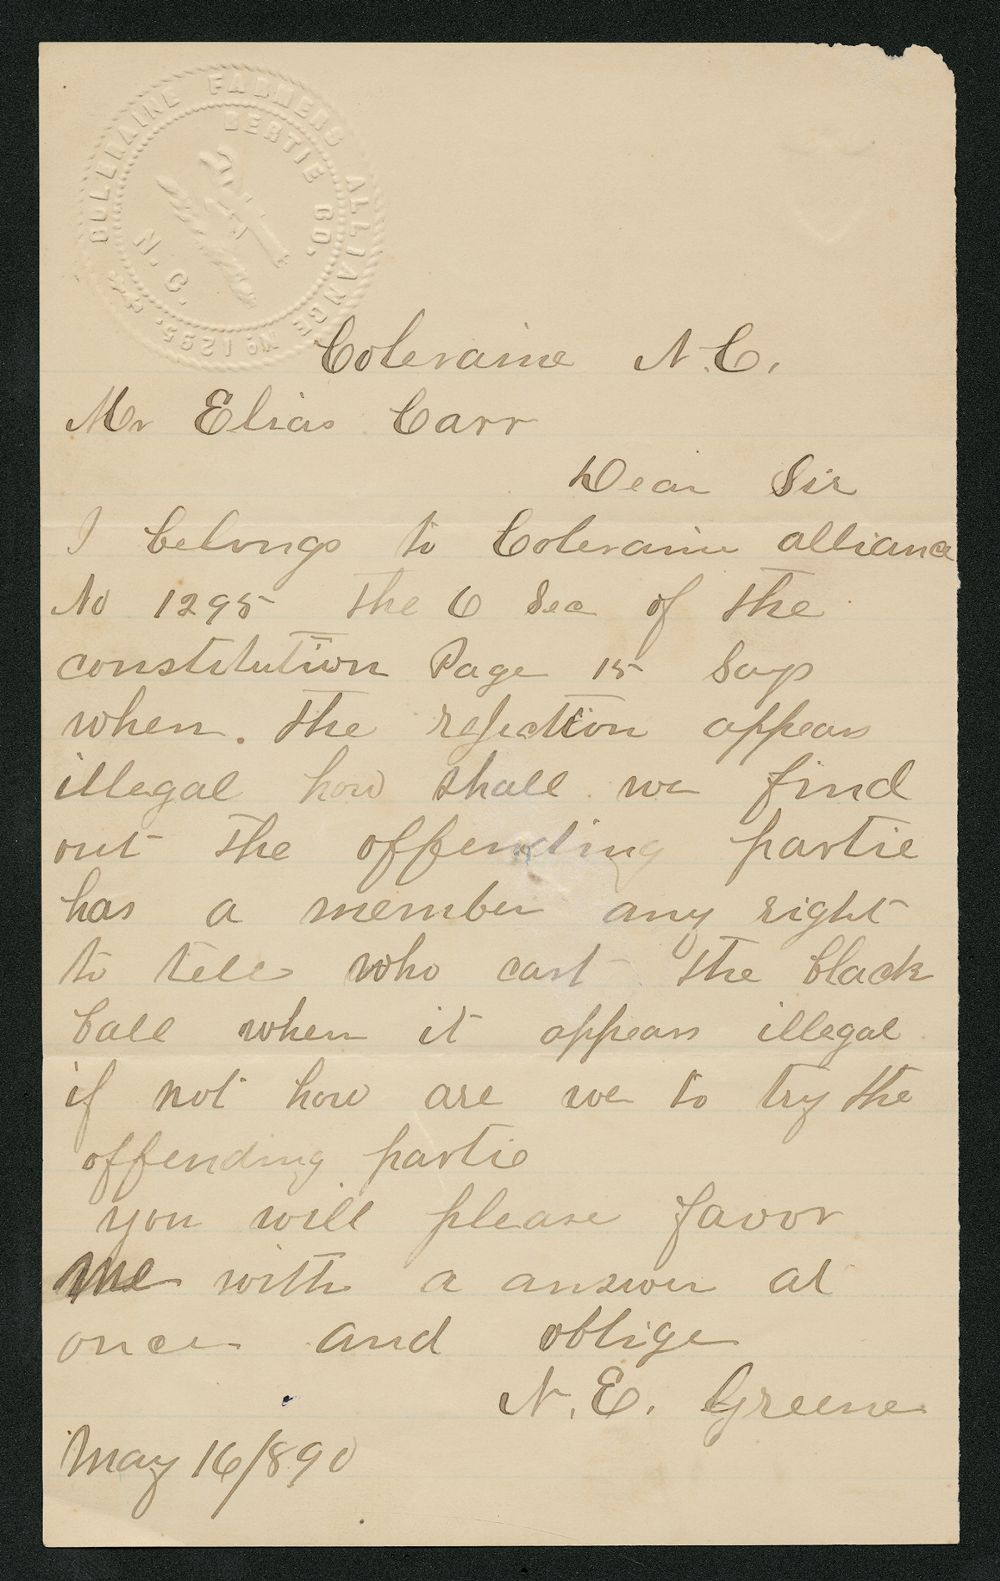 COLERAINE FARMERS ALLIANCE No 1295.
BERTIE CO.
N.C.
Coleraine N.C.
Mr Elias Carr
Dear Sir
I belongs to Coleraine alliance
No 1295 The 6 Sec of the
constitution Page 15 Says
when. The rejection appears
illegal how shall we find
out the offending partie
has a member any right
to tell who cast the black
ball when it appears illegal
if not how are we to try the
offending partie
you will please favor
me with a answer at
once and oblige
N. E. Greene
May 16/890